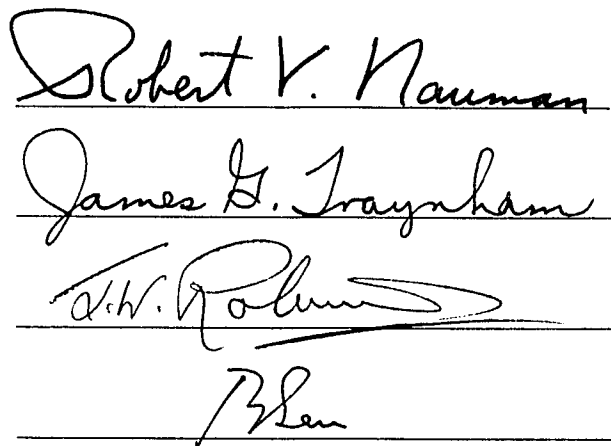 Robert V. Nauman
James G. Traynham
J.W.
B Sen